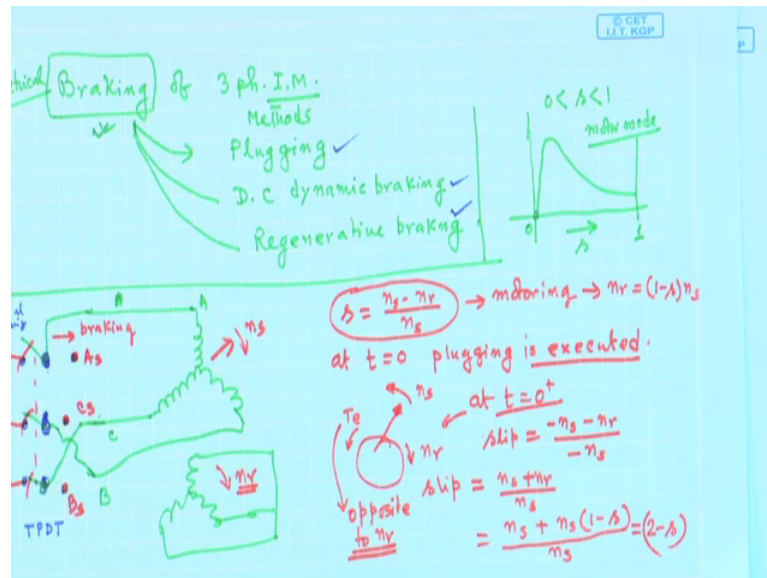 © CET
I.I.T. KGP
P
Braking of 3 ph. I.M.
Methods
Plugging
D.C dynamic braking
Regenerative brakng
0 < s < 1
motor mode
0
s
1
A
A
→ braking
As
Cs
C
B
Bs
TPDT
ns
nr
s = (ns - nr)/ns → motoring → nr = (1-s)ns
at t=0 plugging is executed.
ns
at t=0⁺
Te
nr
slip = (-ns - nr)/(-ns)
opposite
to nr
slip = (ns + nr)/ns
= (ns + ns(1-s))/ns = (2-s)